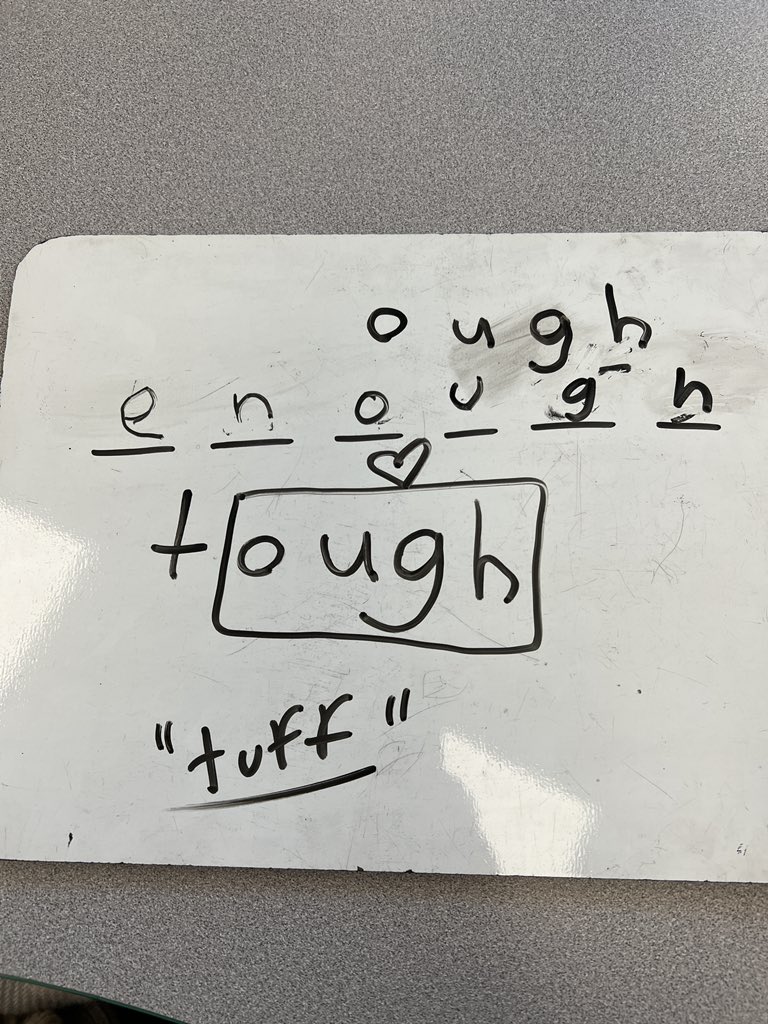 o u g h
e n o u g h
tough
"tuff"